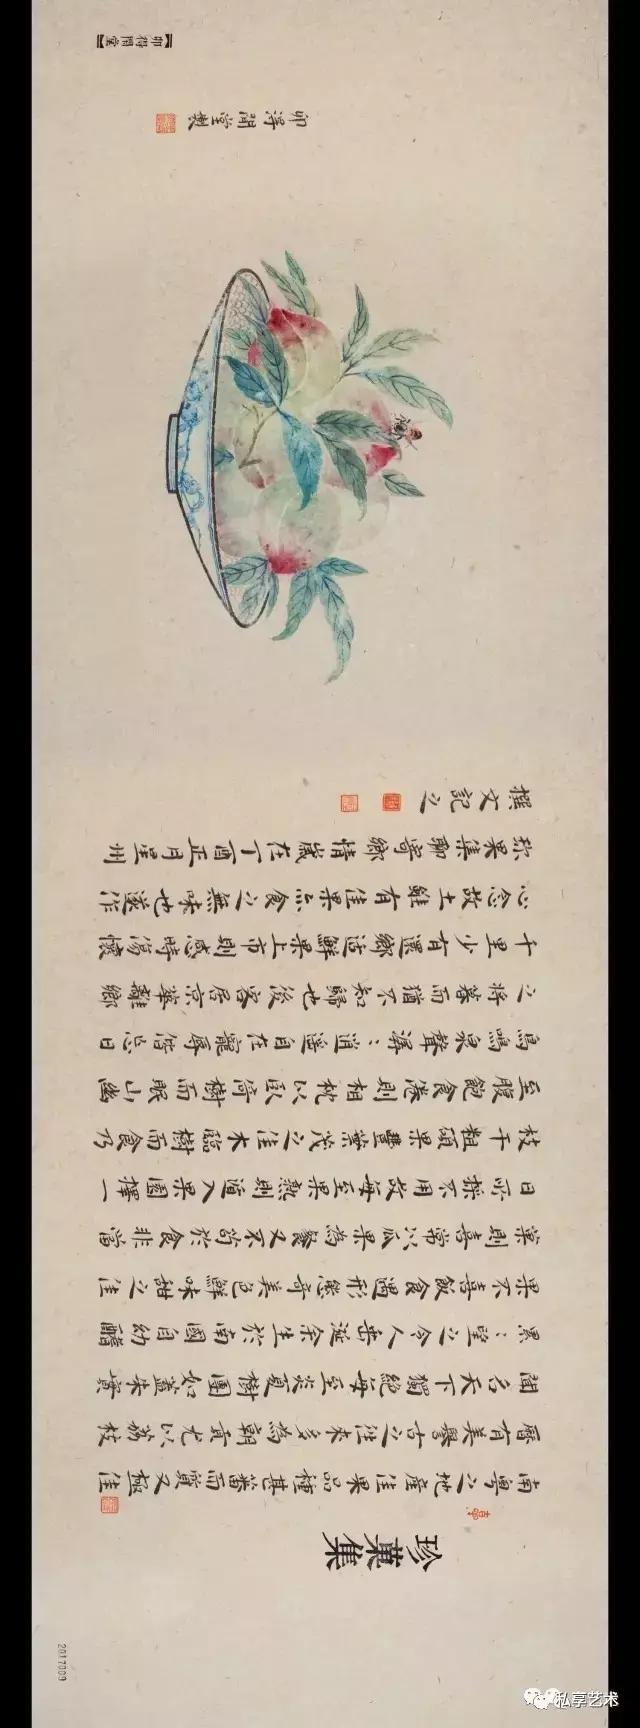 珍菓集
南粤之地產佳果品種甚蕃而質又極佳
歷有美譽古之往來多為朝貢尤以荔枝
聞名天下獨絕每至炎夏樹團如蓋朱實
累:望之令人垂涎余生於南國自幼酷
果不喜飯食遇形態奇美色鮮味甜之佳
菓則喜常以瓜果為餐又不苟於食非當
日所採不用故每至果熟則遁入果園擇一
枝干粗碩果豐葉茂之佳木臨樹而食乃
至腹飽食倦則相枕以臥倚樹而眠山幽
鳥鳴泉聲潺:逍遥自在寵辱偕忘日
之將暮而猶不知歸也後客居京華離鄉
千里少有還鄉逢鮮果上市則感時傷懷
心念故土雖有佳果亦食之無味也遂作
珍果集聊寄鄉情歲在丁酉正月星州
撰文記之
卯得閒堂製
【卯得閒堂】
私享艺术